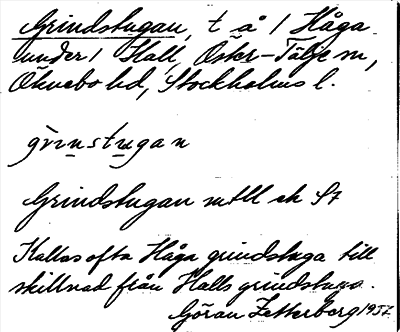 Grindstugan, t å 1 Håga
under 1 Hall, Öster-Tälje sn,
Öknebo hd, Stockholms l.
grinstugan
Grindstugan mtll ek St
Kallas ofta Håga grindstuga till
skillnad från Halls grindstuga.
Göran Zetterberg 1957